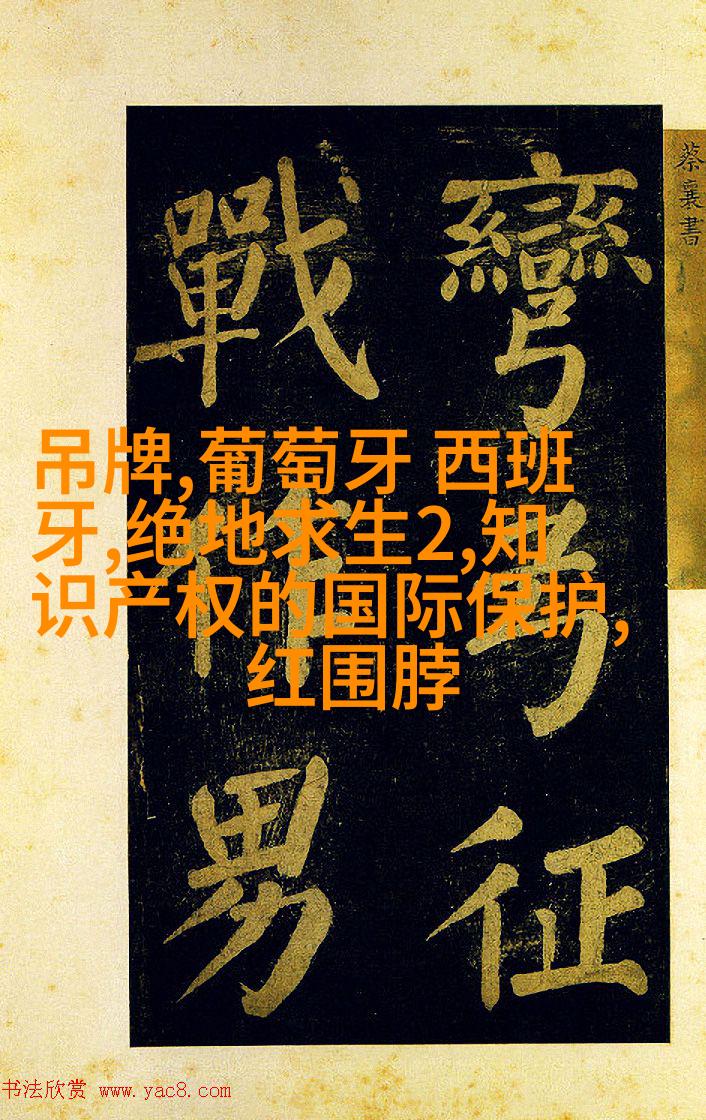 蔡襄書
彎弓征
戰作男
吊牌,葡萄牙 西班
牙,绝地求生2,知
识产权的国际保护,
红围脖
书法欣赏 www.yac8.com